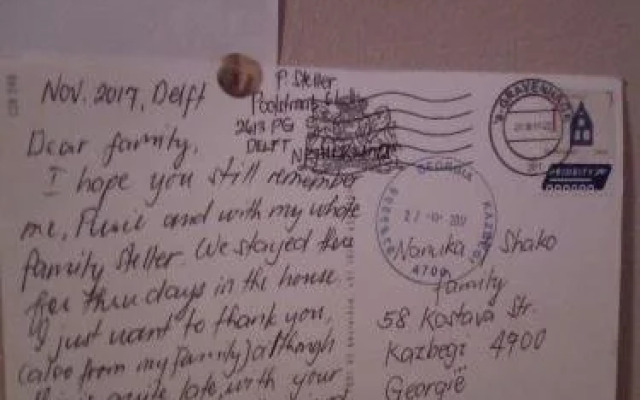 Nov. 2017, Delft
Dear family,
I hope you still remember
me, and with my whole
family Steller. We stayed
for three days in the house.
I just want to thank you,
(also from my family) although
this is quite late, with your
P. Steller
2613 PG
DELFT
'S-GRAVENHAGE
PRIORITY
GEORGIA
KAZBEGI
4700
Nanuka Shako
family
58 Kostava Str.
Kazbegi 4700
Georgië